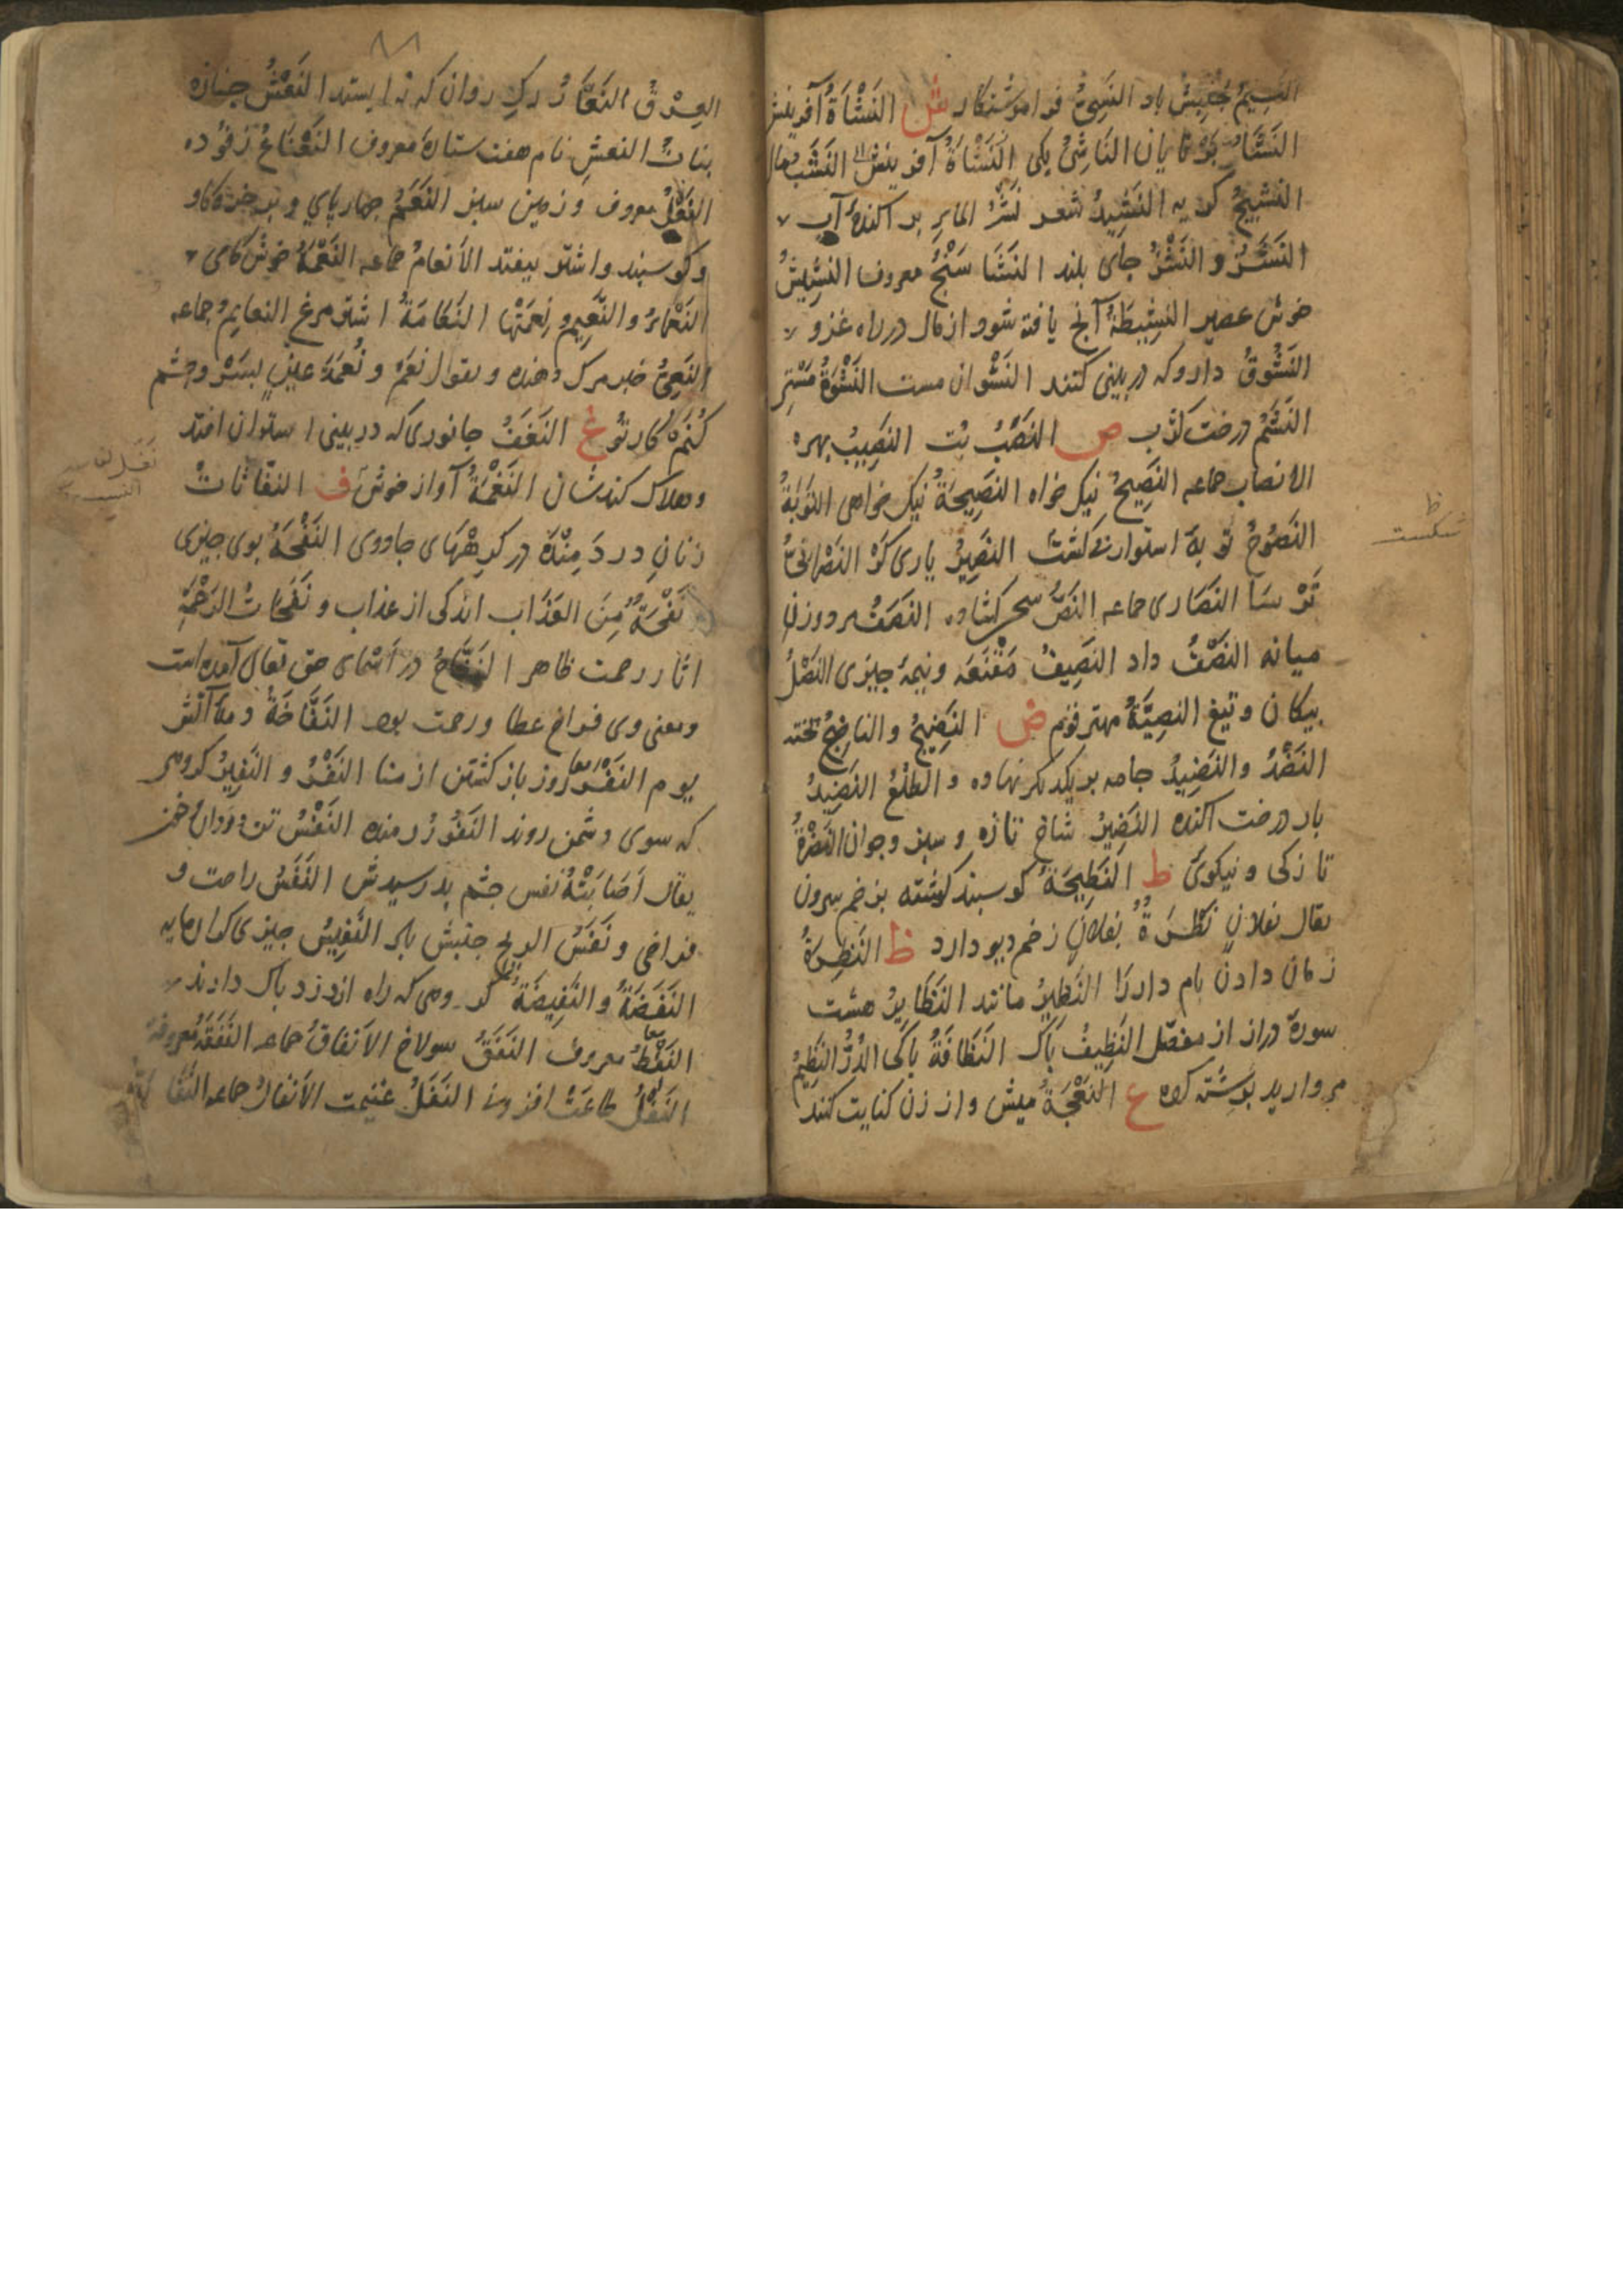 النَسِيمُ جُنبِشْ باد النَسِیُّ فراموشنکار ش النَشْاَةُ آفرینش
بُرنایان النَاشِئُ یکی النَشْاَةُ آفرینش النَشَبُ مال
النَشِیجُ کریه النَشِیدُ شعر نَشْرُ الماءِ پراکندهٔ آب
النَشَزُ و النَشْزُ جای بلند النَشَا سَنْجُ معروف النَشِیشُ
خوش عصیر النَشِیطَةُ آنج یافته شود از مال در راه غزو
النَشُوقُ داروکه در بینی کنند النَشْوان مست النَشْوَةُ مستی
النَشَمُ درخت ص النُصُبُ بُت النَصِیبُ بهره
الانصاب جماعه النَصِیحُ نیک خواه النَصِیحَةُ نیک خواهی التَوبَةُ
النَصُوحُ توبهٔ استوار النَصِیرُ یاری کَرْ النَصْرانیُّ
تَرْسَا النَصَارى جماعه النَصُّ سخن کشاده النَصَفُ مرد و زن
میانه النَصْفُ داد النَصِیفُ مَقْنَعَه و نیمهٔ چیزی النَصْلُ
بیکان و تیغ النَصِیَّةُ مهتر قوم ض النَضِیجُ والناضِجُ بخته
النَضَدُ والنَضِیدُ جامه بریکدیکر نهاده و الطلْعُ النَضِیدُ
بار درخت آکنده النَضِیرُ شاخ تازه و سبز و جوان النَضْرَةُ
تازکی و نیکوی ط النَطِیحَةُ کوسبند کشته بزخم سرون
یقال بفلانٍ نَظْرَةٌ بفلان زخم دیو دارد ظ النَظِرَةُ
زمان دادن بام دار را النَظِیرُ مانند النَظَایِرُ هشت
سورهٔ دراز از مفصّل النَظِیفُ باک النَظَافَةُ باکی الدُرُّ النَظِیمُ
مروارید برشته کرده ع النَعْجَةُ میش و از زن کنایت کنند
شکست
العِرْقُ النَعَّارُ رکِ روان که نه ایستد النَعْشُ جنازه
بناتُ النعشِ نام هفت ستارهٔ معروف النَعْنَاعُ
النَعْلُ معروف و زمین سبز النَعَمُ چهاربای و بر خره کاو
و کوسبند و اشتر بیفتد الأَنعامُ جماعه النَعْمَةُ خوش کامی
النَعْمَاءُ والنَعِیمِ و نِعمَتها النَعَامَةُ اشترمرغ النعایِمُ جماعه
النَعِیُّ خبر مرک دهنده و یقول نَعَمْ و نُعْمَةَ عینٍ بسَرْ و چشم
کُنَم کار تو غ النَغَفُ جانوری که در بینی استوران افتد
وهلاک کندشان النَغْمَةُ آواز خوش ف النفّاثاتُ
زنانِ دردَمِنْدَه در کِرِهْهای جادوی النَفْحَةُ بوی چیزی
نَفْحَةٌ مِنَ العَذَاب اندکی از عذاب و نَفَحَاتُ الرَحْمَةِ
آثار رحمت ظاهر النَفَّاحُ در اَسْمای حق تعالی آمده است
و معنی وی فراخ عطا و رحمت بود النَفَّاخَةُ
یوم النَفْر روز باز کشتن از منا النَفْرُ و النَفِیرُ کروهی
که سوی دشمن روند النَفُورُ رمنده النَفْسُ تن و روان و خون
یقال اَصَابَتْهُ نَفْس چشم بد رسیدش النَفَسُ راحت و
فراخی و نَفَسُ الریح جنبش باد النَفِیسُ چیزی کران مایه
النَفَضَةُ والنَفِیضَةُ کروهی که راه از دزد باک دارند
النَفْطُ معروف النَفَقُ سولاخ الأَنفاقُ جماعه النَفَقَةُ معروفه
النَفْلُ طاعت افزونی النَفَلُ غنیمت الأَنفالُ جماعه